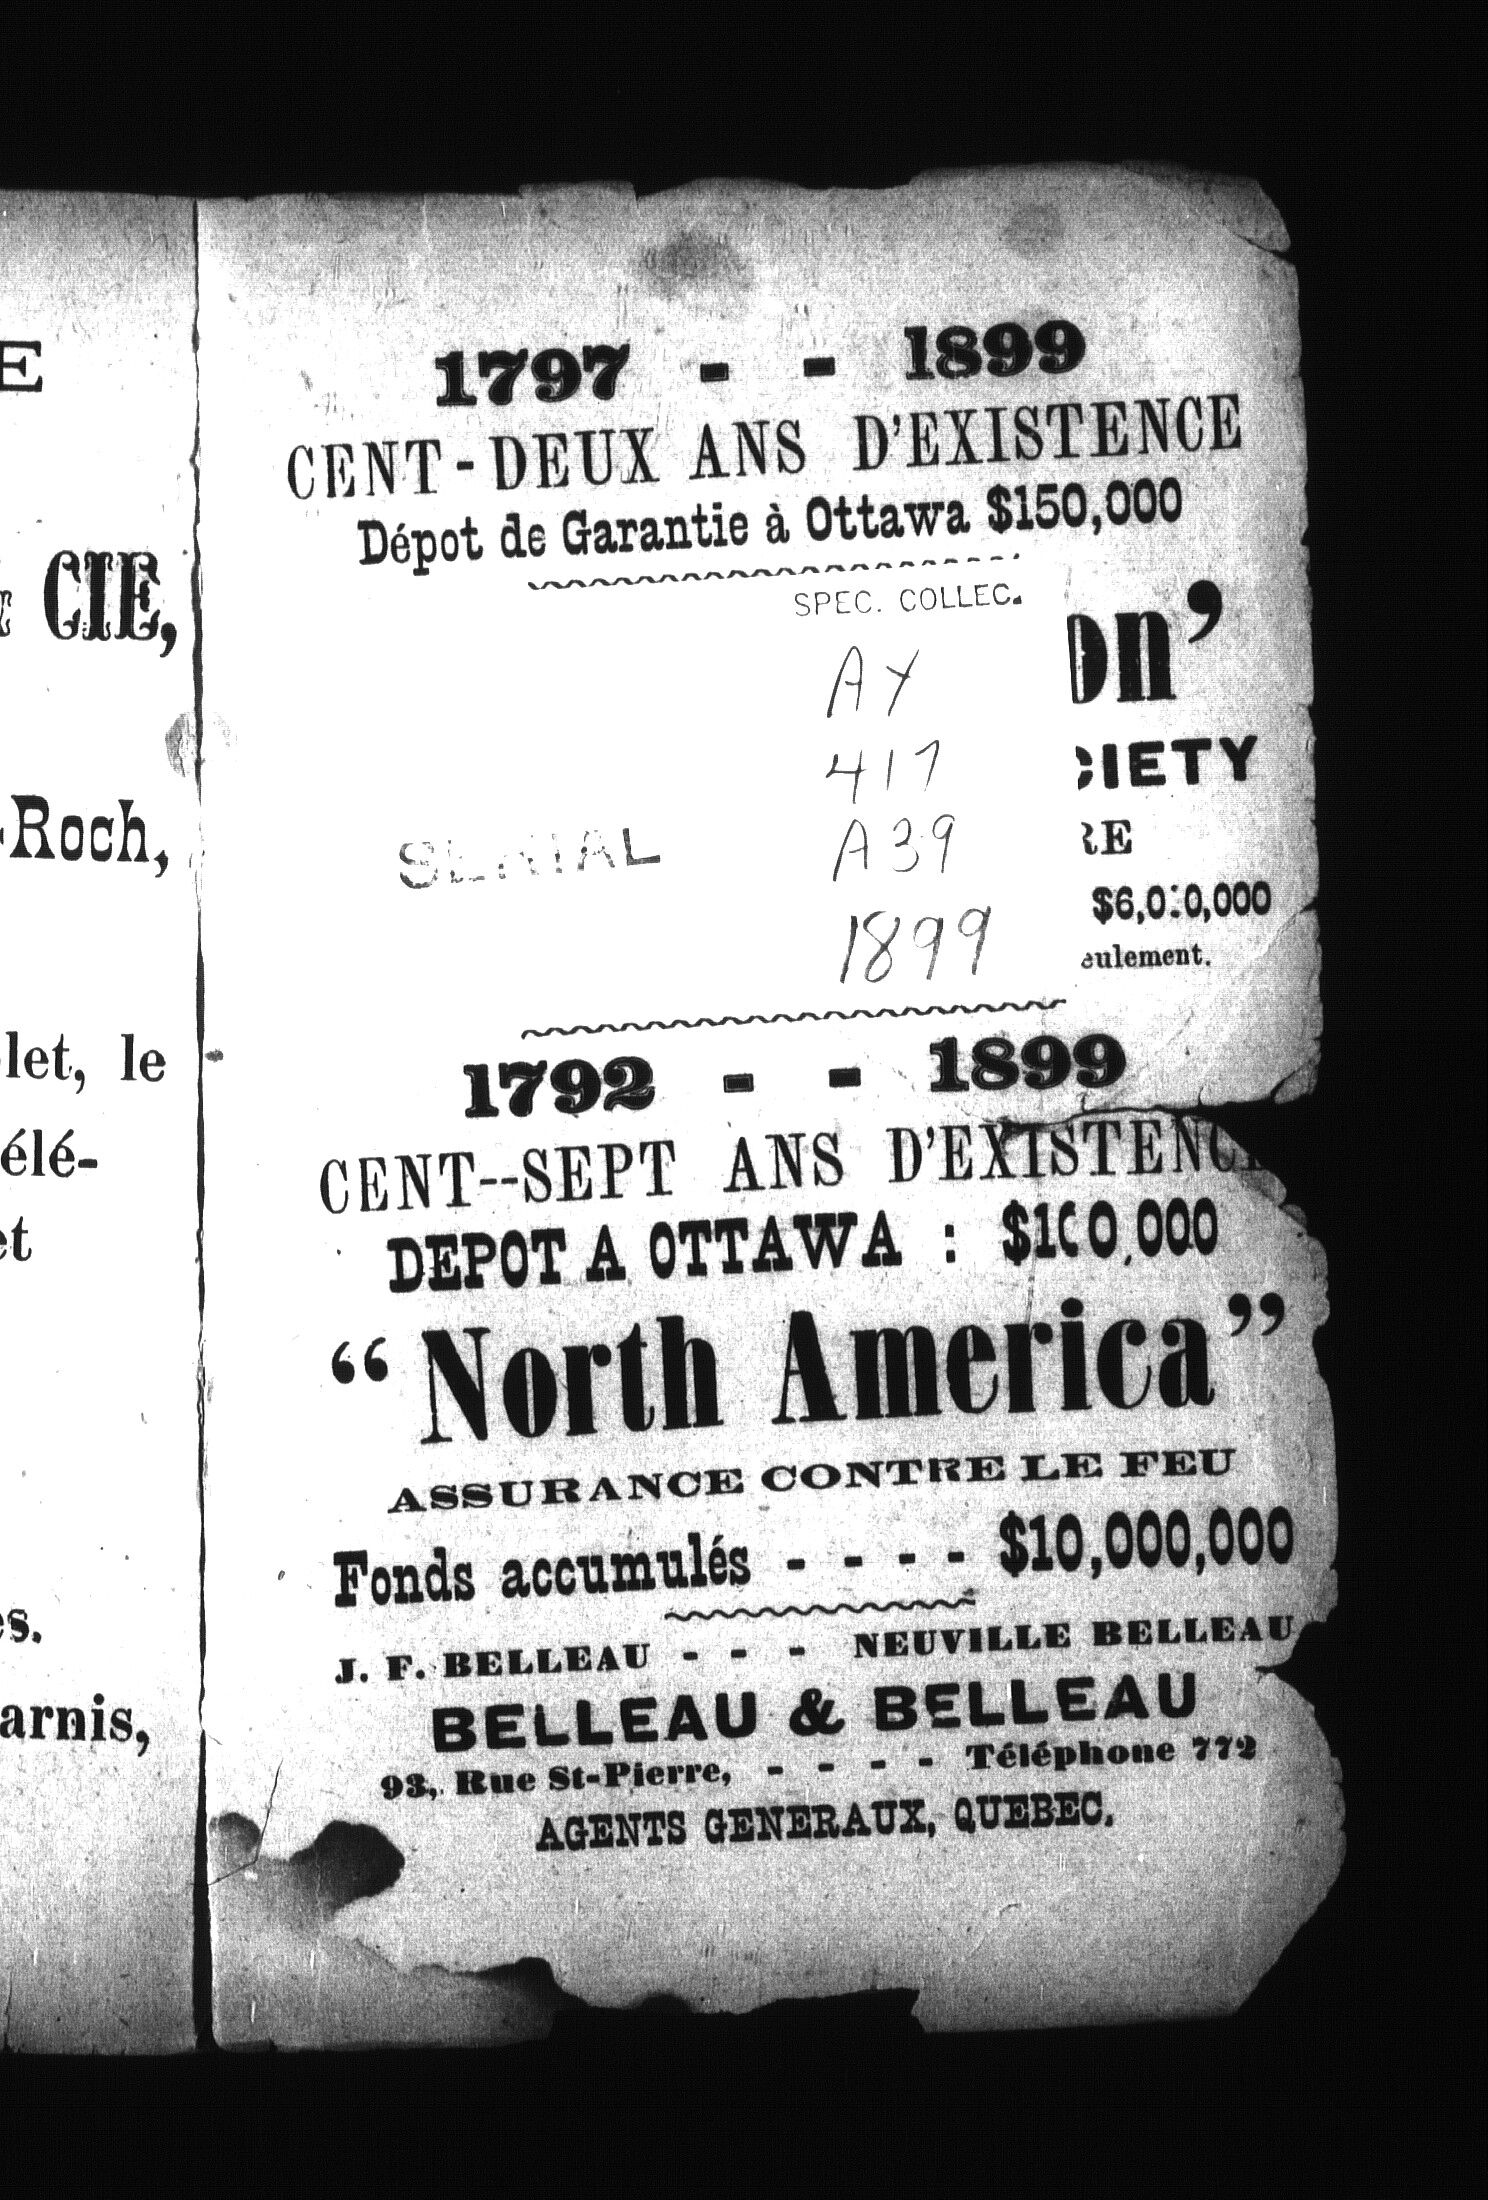 E
CIE,
-Roch,
let, le
élé-
et
es.
arnis,
1797 - - 1899
CENT-DEUX ANS D'EXISTENCE
Dépot de Garantie à Ottawa $150,000
SPEC. COLLEC.
AY
417
A39
1899
SERIAL
on'
CIETY
RE
$6,000,000
eulement.
1792 - - 1899
CENT--SEPT ANS D'EXISTENCE
DEPOT A OTTAWA : $100,000
“North America”
ASSURANCE CONTRE LE FEU
Fonds accumulés - - - - $10,000,000
J. F. BELLEAU - - - NEUVILLE BELLEAU
BELLEAU & BELLEAU
93, Rue St-Pierre, - - - - Téléphone 772
AGENTS GENERAUX, QUEBEC.